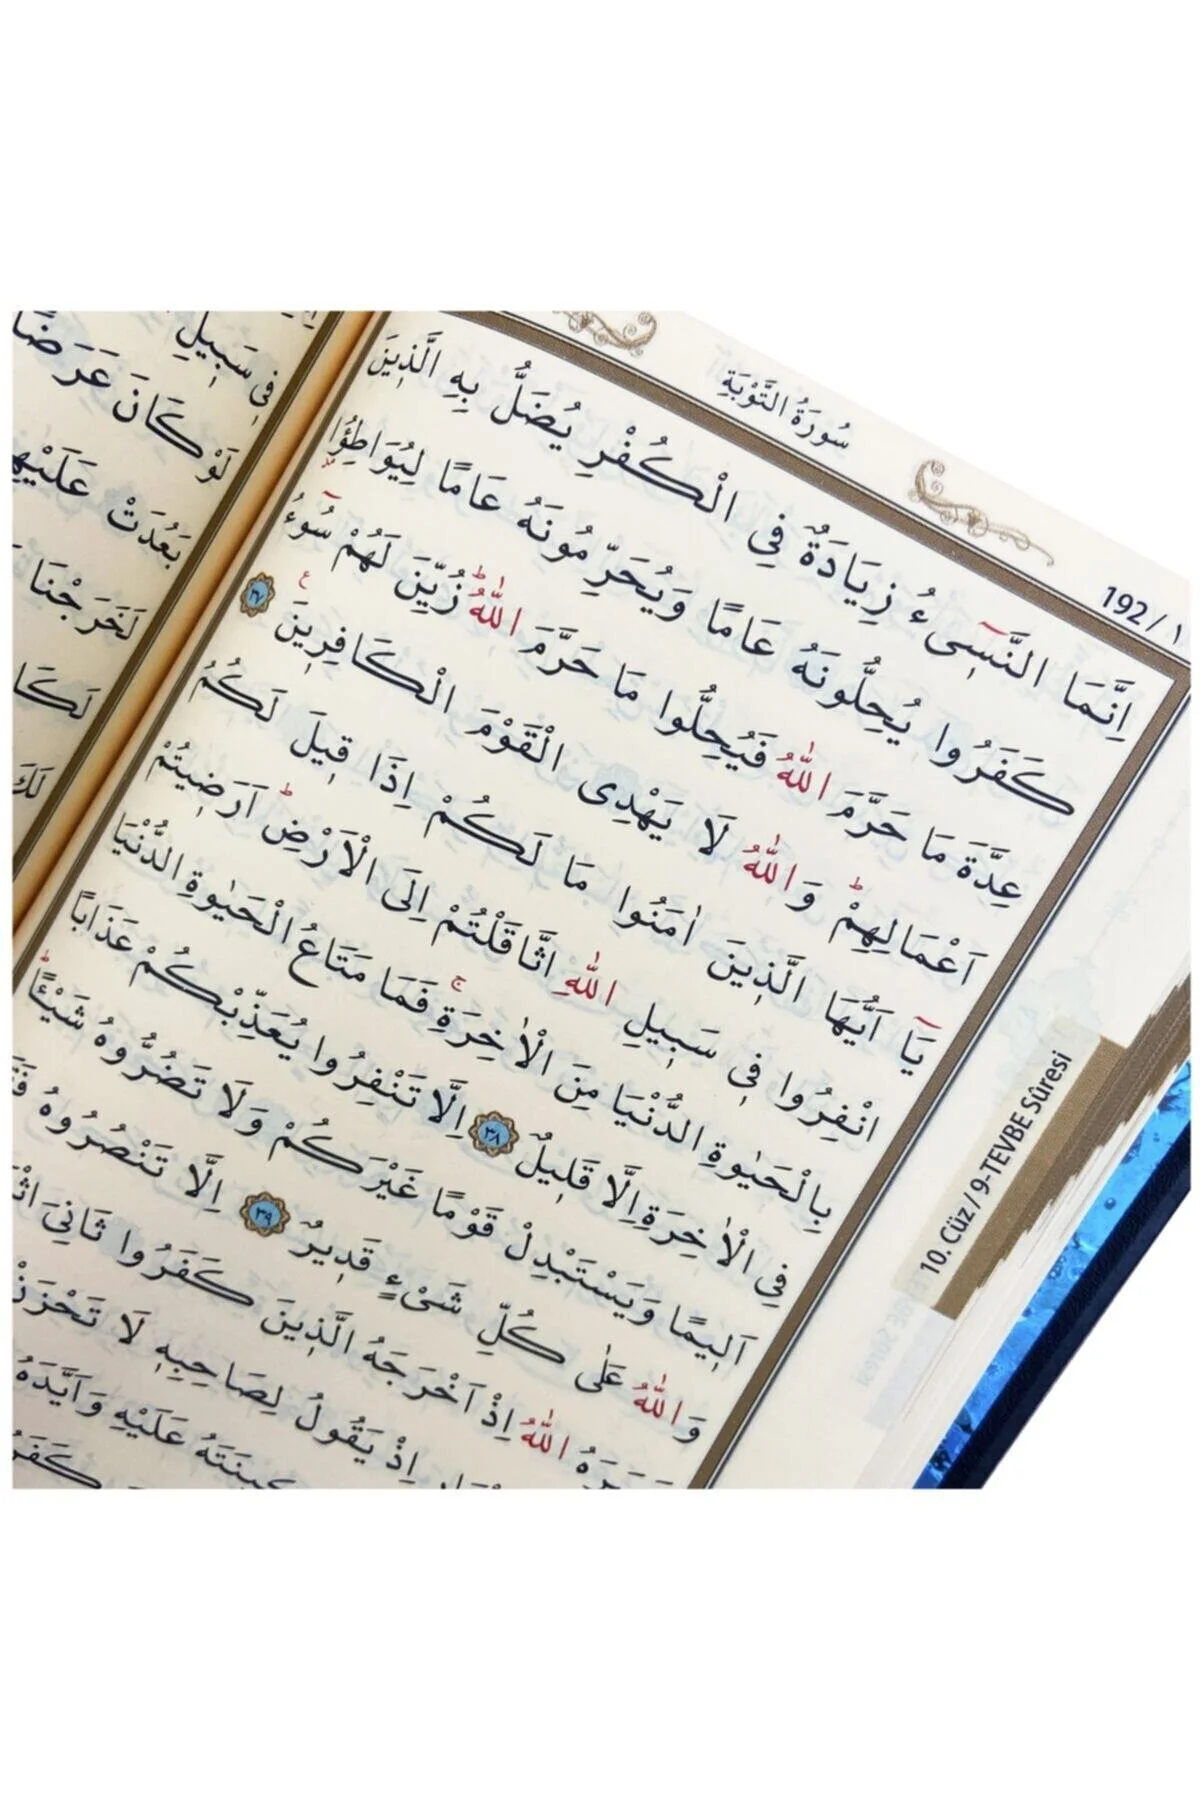 192 / ١
سُورَةُ التَّوْبَةِ
اِنَّمَا النَّسٖٓىءُ زِيَادَةٌ فِى الْكُفْرِ يُضَلُّ بِهِ الَّذٖينَ
كَفَرُوا يُحِلُّونَهُ عَامًا وَيُحَرِّمُونَهُ عَامًا لِيُوَاطِؤُ۫ا
عِدَّةَ مَا حَرَّمَ اللّٰهُ فَيُحِلُّوا مَا حَرَّمَ اللّٰهُؕ زُيِّنَ لَهُمْ سُٓوءُ
اَعْمَالِهِمْؕ وَاللّٰهُ لَا يَهْدِى الْقَوْمَ الْكَافِرٖينَ ع ﴿٣٧﴾
يَٓا اَيُّهَا الَّذٖينَ اٰمَنُوا مَا لَكُمْ اِذَا قٖيلَ لَكُمُ
انْفِرُوا فٖى سَبٖيلِ اللّٰهِ اثَّاقَلْتُمْ اِلَى الْاَرْضِؕ اَرَضٖيتُمْ
بِالْحَيٰوةِ الدُّنْيَا مِنَ الْاٰخِرَةِۚ فَمَا مَتَاعُ الْحَيٰوةِ الدُّنْيَا
فِى الْاٰخِرَةِ اِلَّا قَلٖيلٌ ﴿٣٨﴾ اِلَّا تَنْفِرُوا يُعَذِّبْكُمْ عَذَابًا
اَلٖيمًا وَيَسْتَبْدِلْ قَوْمًا غَيْرَكُمْ وَلَا تَضُرُّوهُ شَيْـًٔاؕ
وَاللّٰهُ عَلٰى كُلِّ شَىْءٍ قَدٖيرٌ ﴿٣٩﴾ اِلَّا تَنْصُرُوهُ
اللّٰهُ اِذْ اَخْرَجَهُ الَّذٖينَ كَفَرُوا ثَانِىَ
اِذْ يَقُولُ لِصَاحِبِهٖ لَا تَحْزَنْ
عَلَيْهِ وَاَيَّدَهُ
10. Cüz / 9-TEVBE Sûresi
فٖى سَبٖيلِ
لَوْ كَانَ عَرَضًا
بَعُدَتْ عَلَيْهِ
لَخَرَجْنَا